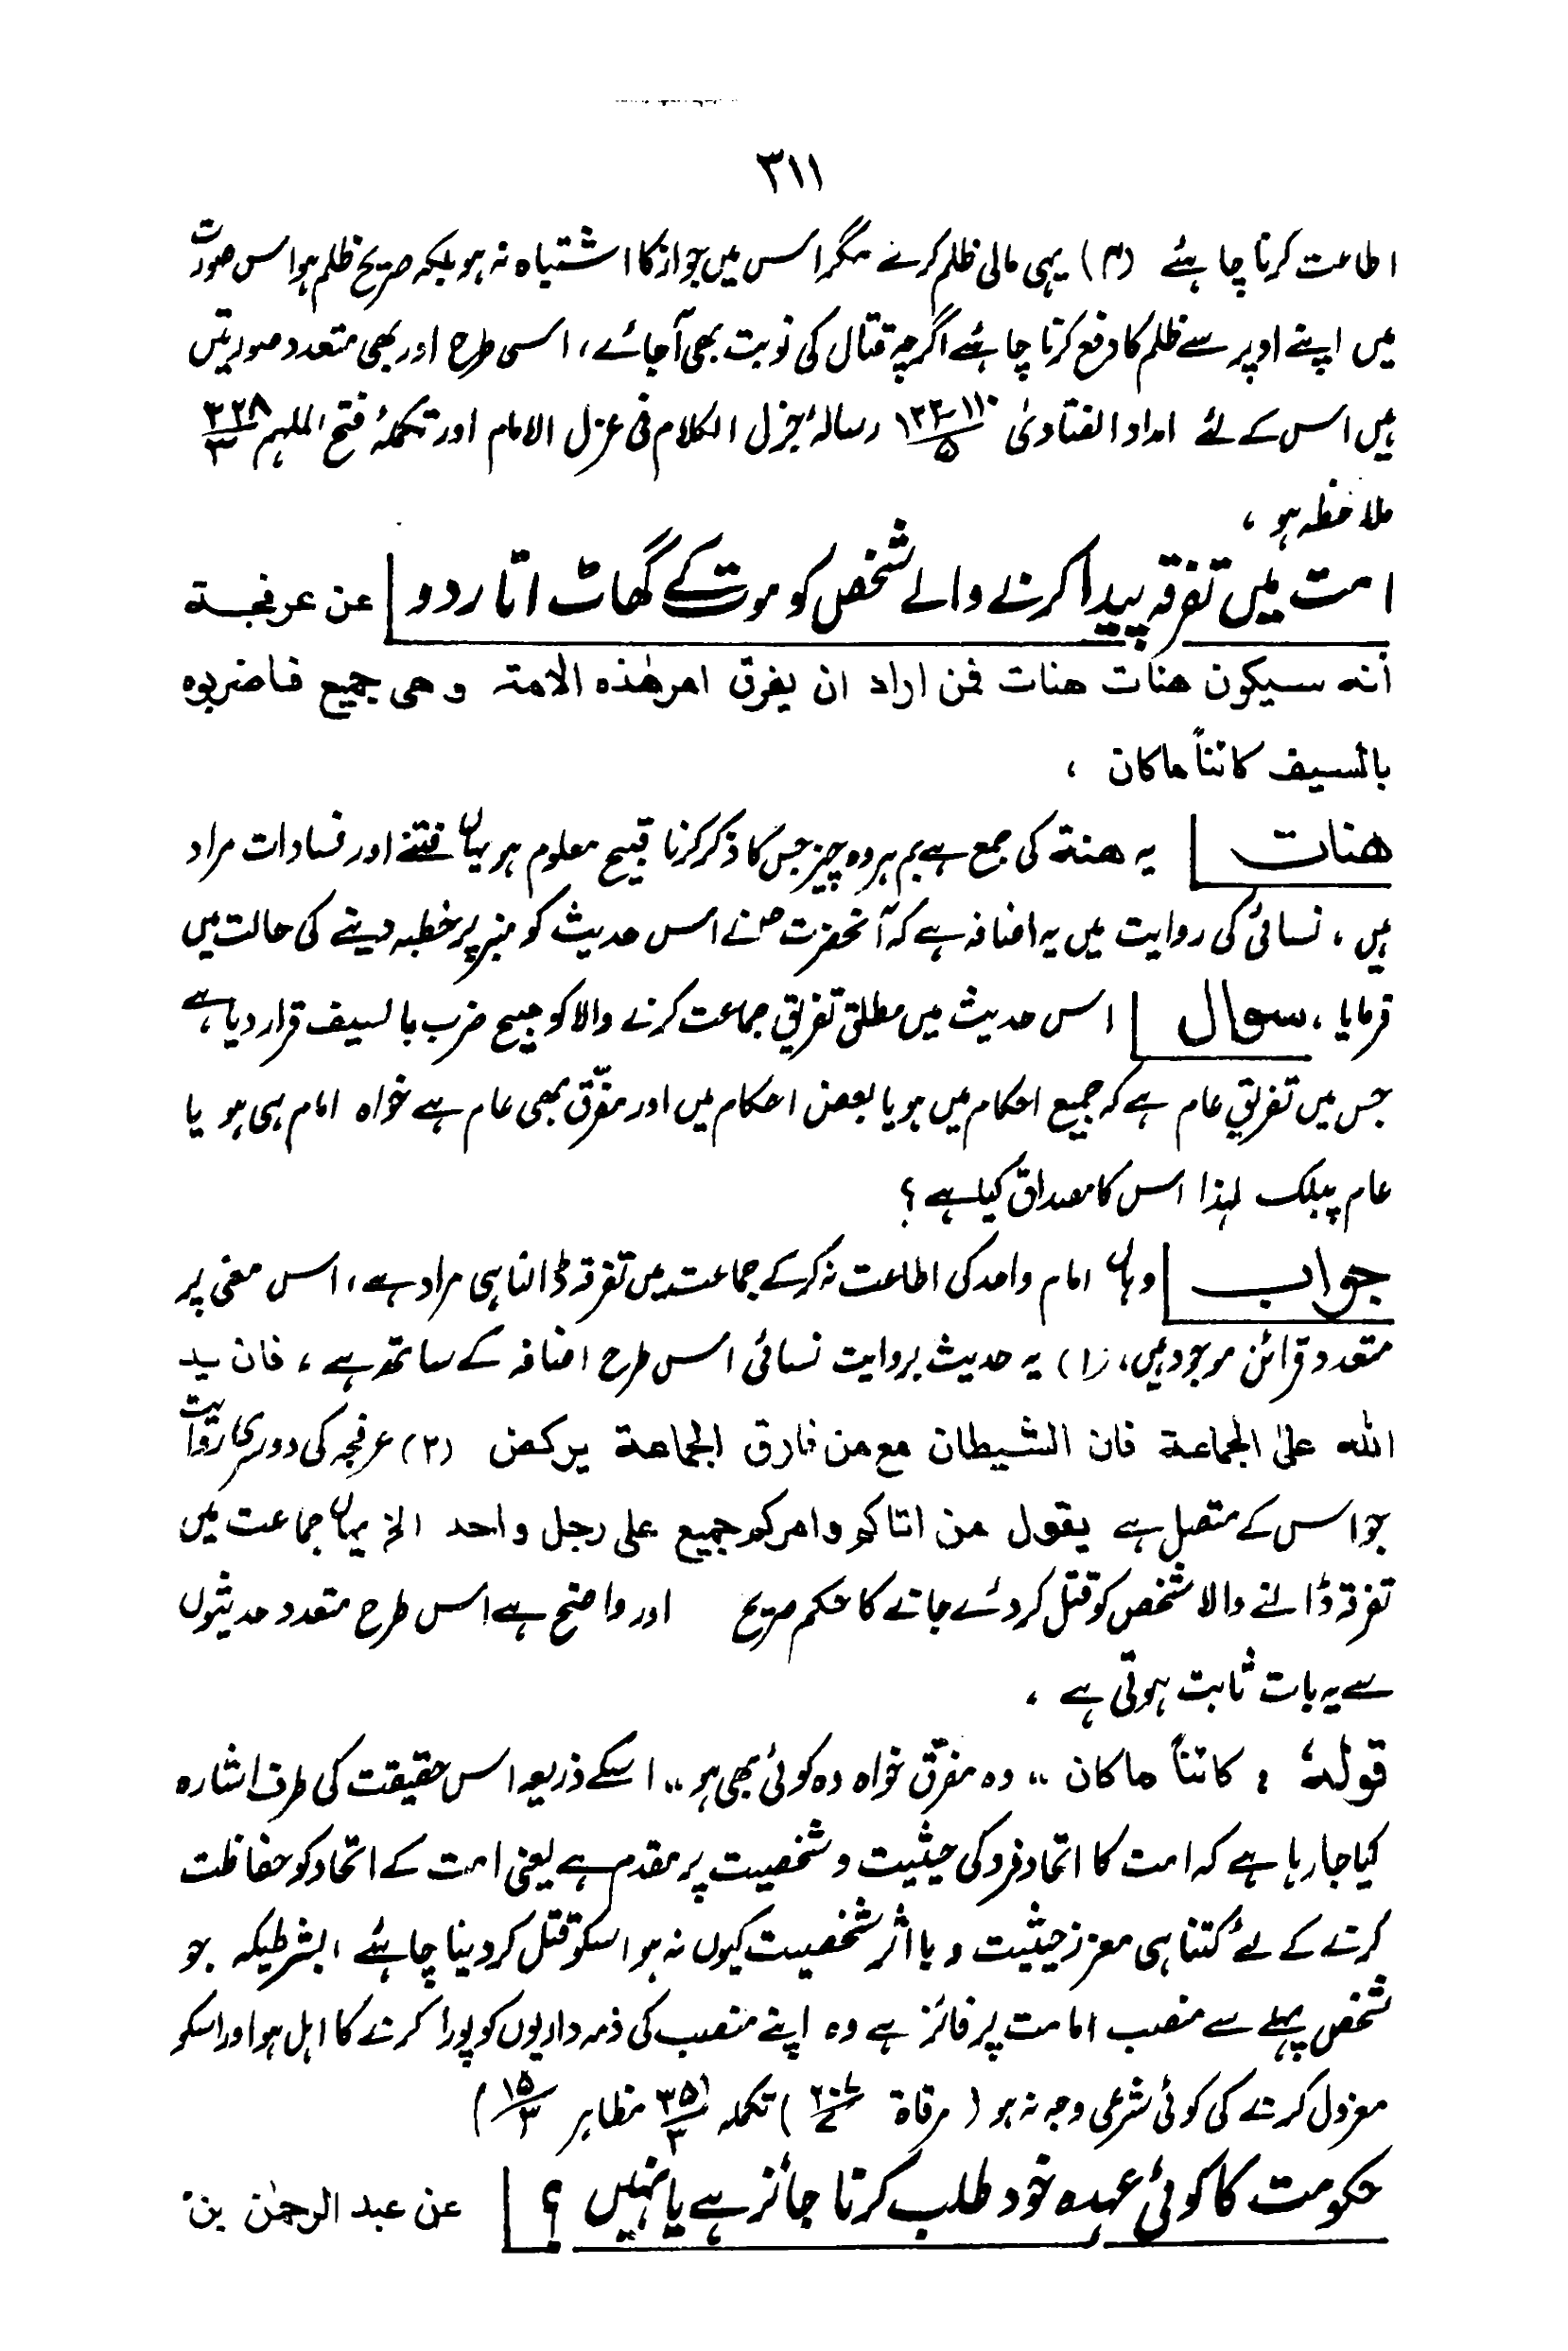 ۳۱۱
اطاعت کرنا چاہئے (۳) یہی مالی ظلم کرنے مگر اس میں جواز کا اشتباہ نہ ہو بلکہ صریح ظلم ہو اس صورت
میں اپنے اوپر سے ظلم کا دفع کرنا چاہئے اگرچہ قتال کی نوبت بھی آجائے، اسی طرح اور بھی متعدد صورتیں
ہیں اس کے لئے امداد الفتاویٰ رسالۂ جزل الکلام فی عزل الامام اور تکملۂ فتح الملہم ۳۲۸/۳
ملاحظہ ہو ،
امت میں تفرقہ پیدا کرنے والے شخص کو موت کے گھاٹ اتار دو عن عرفجة
أنه سيكون هنات هنات فمن اراد ان يفرق امر هٰذه الامة وهى جميع فاضربوه
بالسيف كائناً ماكان ،
هنات یہ هنة کی جمع ہے بم ہر وہ چیز جس کا ذکر کرنا قبیح معلوم ہو یہاں فتنے اور فسادات مراد
ہیں ، نسائی کی روایت میں یہ اضافہ ہے کہ آنحضرت ؐ نے اس حدیث کو منبر پر خطبہ دینے کی حالت میں
فرمایا ، سوال اس حدیث میں مطلق تفریق جماعت کرنے والا کو مبیح ضرب بالسیف قرار دیا ہے
جس میں تفریق عام ہے کہ جمیع احکام میں ہو یا بعض احکام میں اور مفرّق بھی عام ہے خواہ امام ہی ہو یا
عام پبلک لہذا اس کا مصداق کیا ہے ؟
جواب وہاں امام واحد کی اطاعت نہ کرکے جماعت میں تفرقہ ڈالنا ہی مراد ہے ، اس معنی پر
متعدد قرائن موجود ہیں، (۱) یہ حدیث بروایت نسائی اس طرح اضافہ کے ساتھ ہے ، فان يد
الله على الجماعة فان الشيطان مع من فارق الجماعة يركض (۲) عرفجہ کی دوسری روایت
جو اس کے متصل ہے يقول من اتاكم وامركم جميع على رجل واحد الخ یہاں جماعت میں
تفرقہ ڈالنے والا شخص کو قتل کردئے جانے کا حکم صریح اور واضح ہے اس طرح متعدد حدیثوں
سے یہ بات ثابت ہوتی ہے ،
قولهٗ : كائناً ماكان ،، وہ مفرّق خواہ وہ کوئی بھی ہو ،، اسکے ذریعہ اس حقیقت کی طرف اشارہ
کیا جارہا ہے کہ امت کا اتحاد فرد کی حیثیت و شخصیت پر مقدم ہے یعنی امت کے اتحاد کو حفاظت
کرنے کے لئے کتنا ہی معزز حیثیت و با اثر شخصیت کیوں نہ ہو اسکو قتل کردینا چاہئے ، بشرطیکہ جو
شخص پہلے سے منصب امامت پر فائز ہے وہ اپنے منصب کی ذمہ داریوں کو پورا کرنے کا اہل ہو اور اسکو
معزول کرنے کی کوئی شرعی وجہ نہ ہو ( مرقاة ) تکملہ ۳۵۱/۳ مظاہر ۱۵/۳ )
حکومت کا کوئی عہدہ خود طلب کرنا جائز ہے یا نہیں ؟ عن عبد الرحمٰن بن